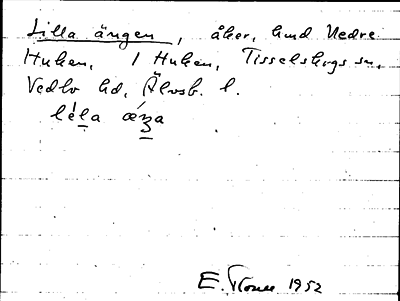 Lilla ängen, åker, hmd Nedre
Huken, 1 Huken, Tisselskogs sn,
Vedbo hd, Älvsb. l.
léla
E. 1952